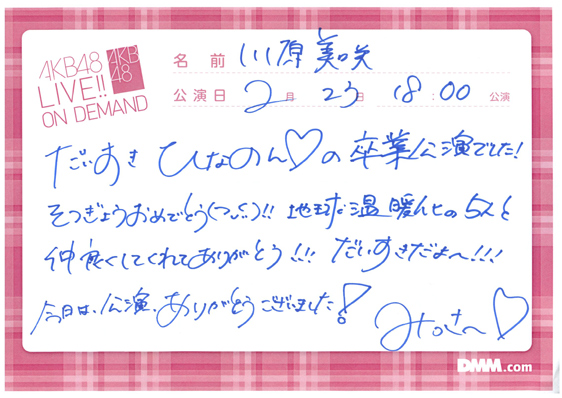 AKB48
LIVE!!
ON DEMAND
AKB
48
名 前 川原美咲
公演日 2月23日 18:00 公演
だいすき ひなのん♡の卒業公演でした!
そつぎょうおめでとう(つω;)!! 地球温暖化の5人と
仲良くしてくれてありがとう!!! だいすきだよ〜!!!
今日は、公演、ありがとうございました!
みさき〜♡
DMM.com